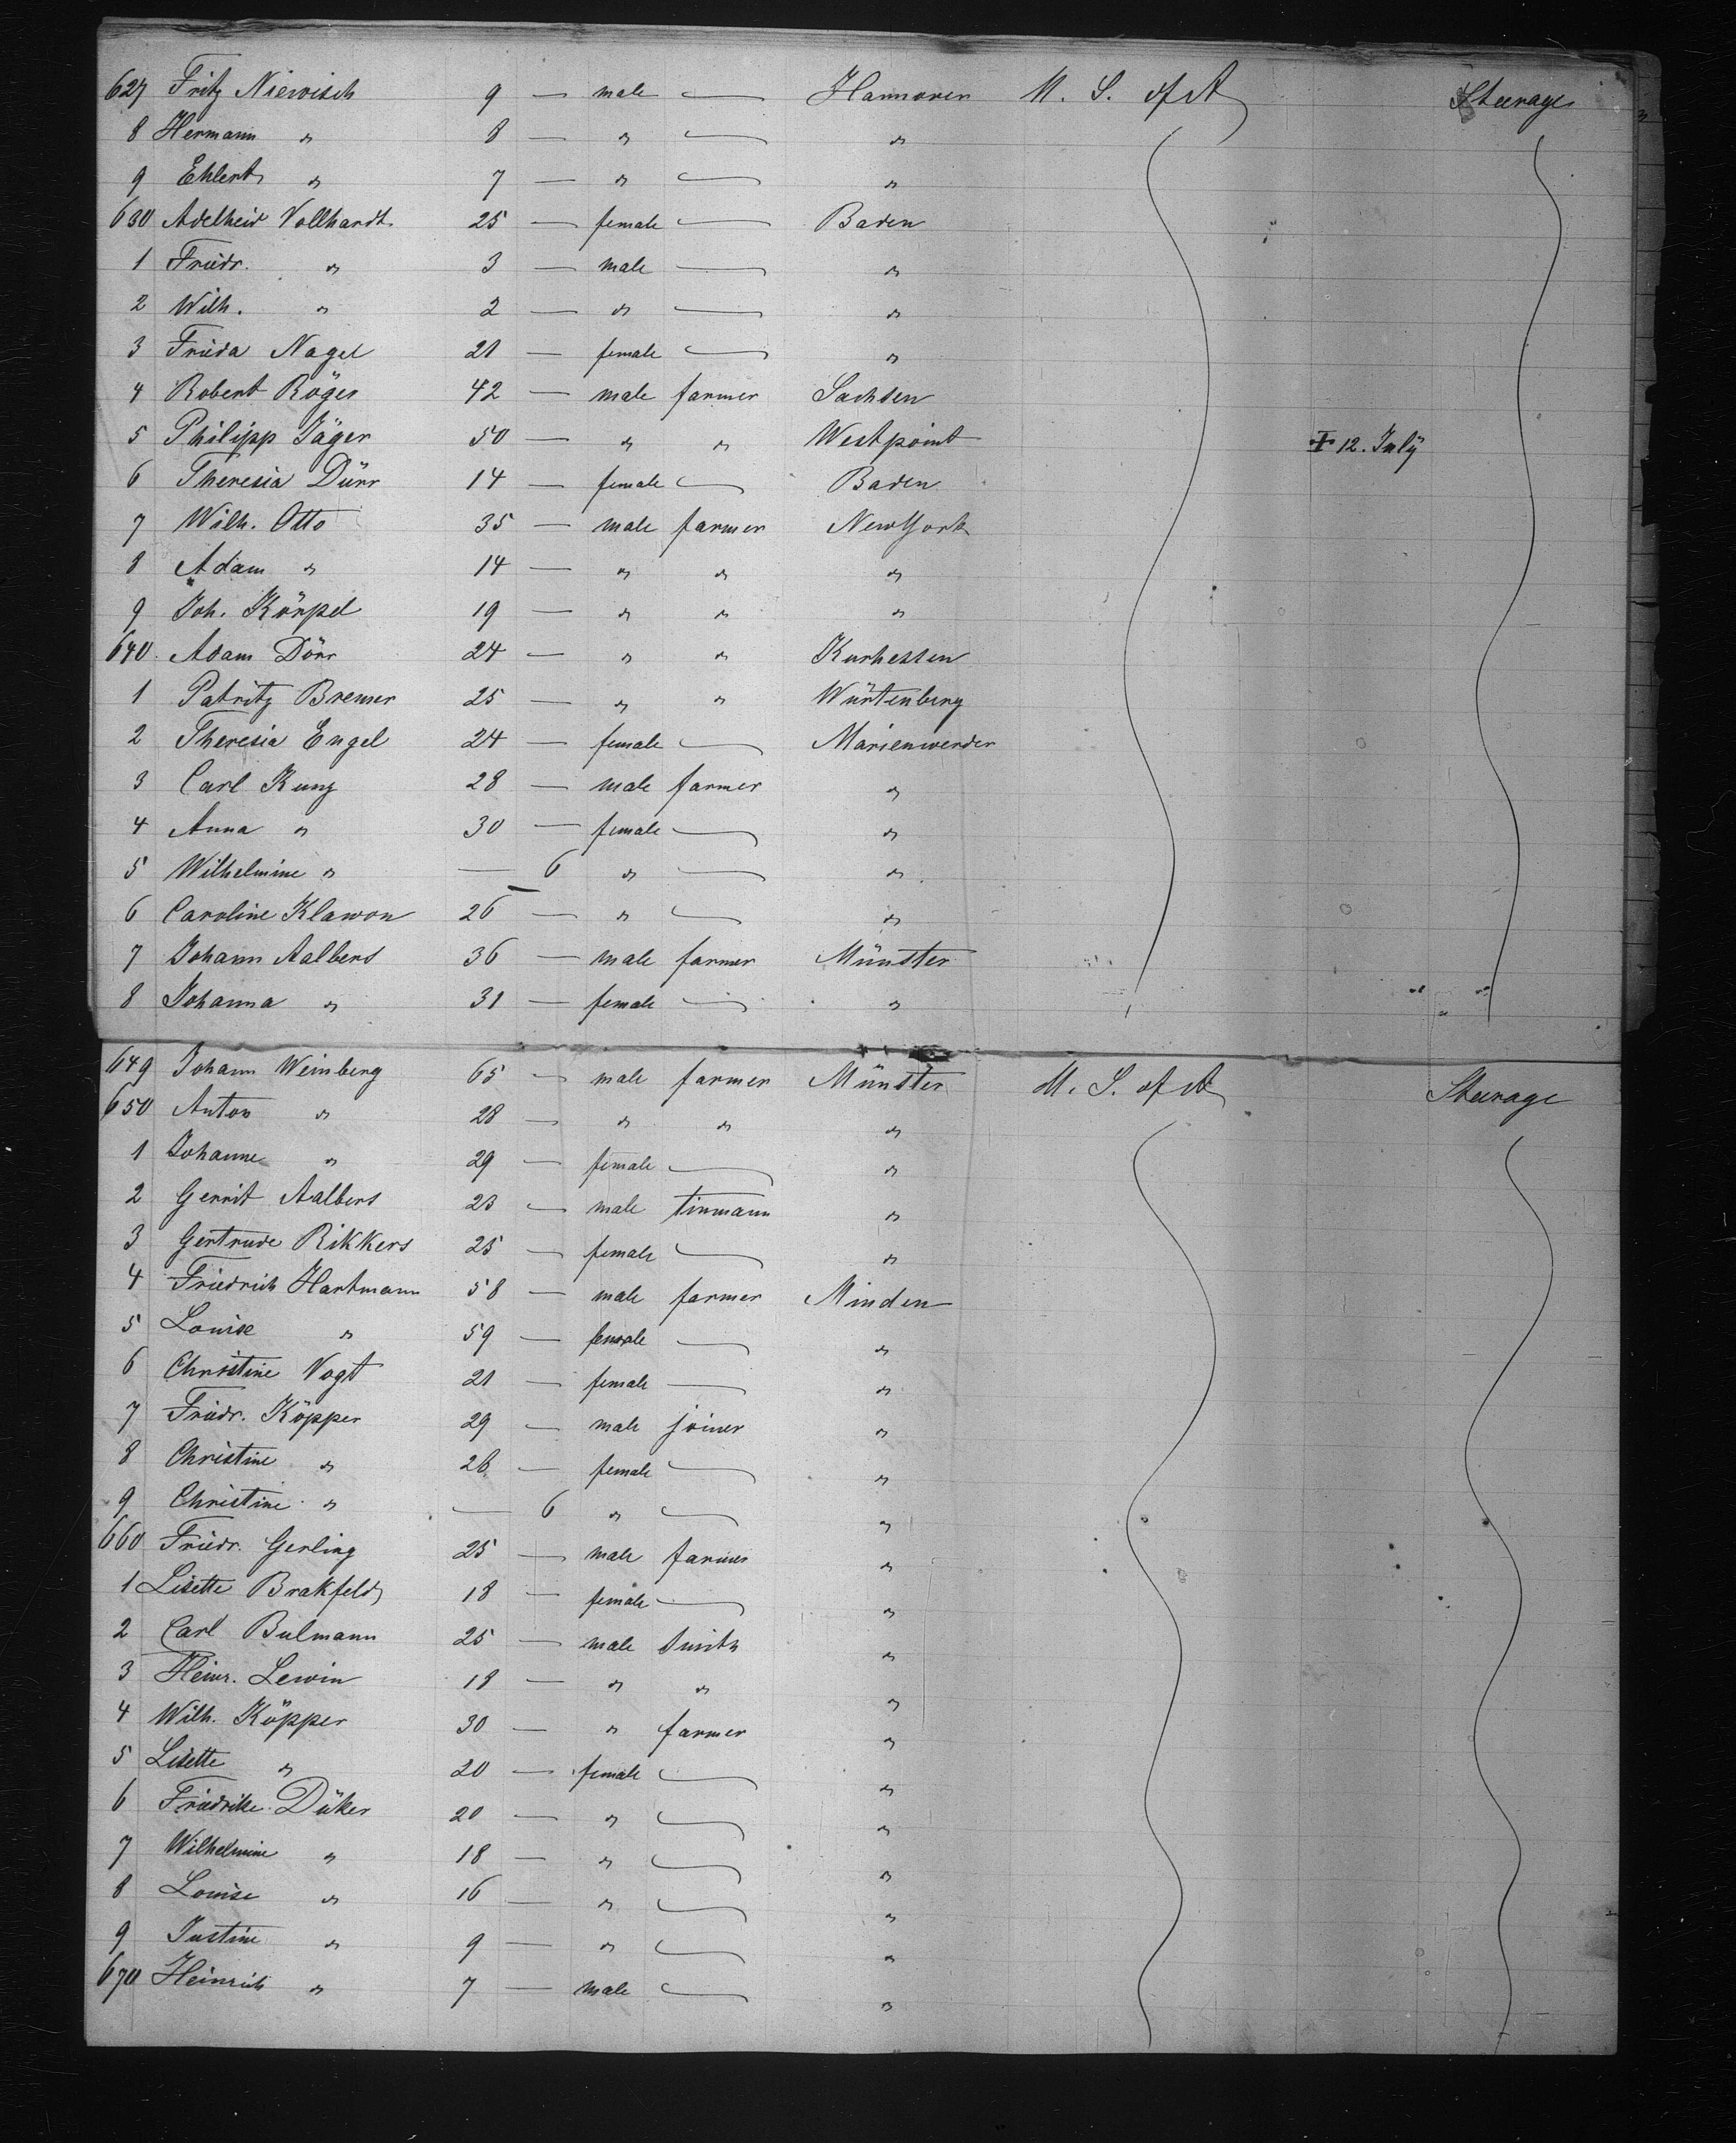 627 Fritz Niewisch 9 — male — Hannover U. S. of A Steerage
8 Hermann " 8 — " — "
9 Ehlert " 7 — " — "
630 Adelheid Vollhardt. 25 — female — Baden
1 Friedr. " 3 — male — "
2 Wilh. " 2 — " — "
3 Frieda Nagel 21 — female — "
4 Robert Röger 42 — male farmer Sachsen
5 Philipp Jäger 50 — " " Westpoint ✝ 12. July
6 Theresia Dürr 14 — female — Baden
7 Wilh. Otto 35 — male farmer New York
8 Adam " 14 — " " "
9 Joh. Körpel 19 — " " "
640. Adam Dörr 24 — " " Kurhessen
1 Patritz Bremer 25 — " " Würtenberg
2 Theresia Engel 24 — female — Marienwerder
3 Carl Kunz 28 — male farmer "
4 Anna " 30 — female — "
5 Wilhelmine " — 6 " — "
6 Caroline Klawon 26 — " — "
7 Johann Aalbers 36 — male farmer Münster
8 Johanna " 31 — female — "
649 Johann Weinberg 65 — male farmer Münster U. S. of A Steerage
650 Anton " 28 — " " "
1 Johanne " 29 — female — "
2 Gerrit Aalbers 23 — male tinmann "
3 Gertrude Rikkers 25 — female — "
4 Friedrich Hartmann 58 — male farmer Minden
5 Louise " 59 — female — "
6 Christine Vogt 21 — female — "
7 Friedr. Köpper 29 — male joiner "
8 Christine " 26 — female — "
9 Christine " — 6 " — "
660 Friedr. Gerling 25 — male farmer "
1 Lisette Brakfeld 18 — female — "
2 Carl Bulmann 25 — male smith "
3 Heinr. Lewin 18 — " " "
4 Wilh. Köpper 30 — " farmer "
5 Lisette " 20 — female — "
6 Friedrike Düker 20 — " — "
7 Wilhelmine " 18 — " — "
8 Louise " 16 — " — "
9 Justine " 9 — " — "
670 Heinrich " 7 — male — "